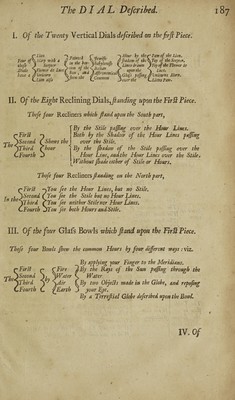 The DIAL Described. 187
I. Of the Twenty Vertical Dials described on the first Piece.
Four of
Glass
Dials
have a
Lion
Unicorn
Painted
Italian
upon the
Glass, passing
over the
Unicorns Horn.
Lions Paw.
II. Of the Eight Reclining Dials, standing upon the First Piece.
These four Recliners which stand upon the South part,
The
First
Second
Third
Fourth
Shows the
hour
By the Stile passing over the Hour Lines.
Both by the Shadow of the Hour Lines passing
over the Stile.
By the shadow of the Stile passing over the
Hour Line, and the Hour Lines over the Stile.
Without shade either of Stile or Hours.
These four Recliners standing on the North part,
In the
First
Second
Third
Fourth
You see the Hour Lines, but no Stile.
You see the Stile but no Hour Lines.
You see neither Stile nor Hour Lines.
You see both Hours and Stile.
III. Of the four Glass Bowls which stand upon the First Piece.
These four Bowls shew the common Hours by four different ways: viz.
The
First
Second
Third
Fourth
Fire
Water
Air
Earth
By applying your Finger to the Meridians.
By the Rays of the Sun passing through the
Water
By two Objects made in the Globe, and reposing
your Eye,
By a Terrestrial Globe described upon the Bowl.
IV. Of